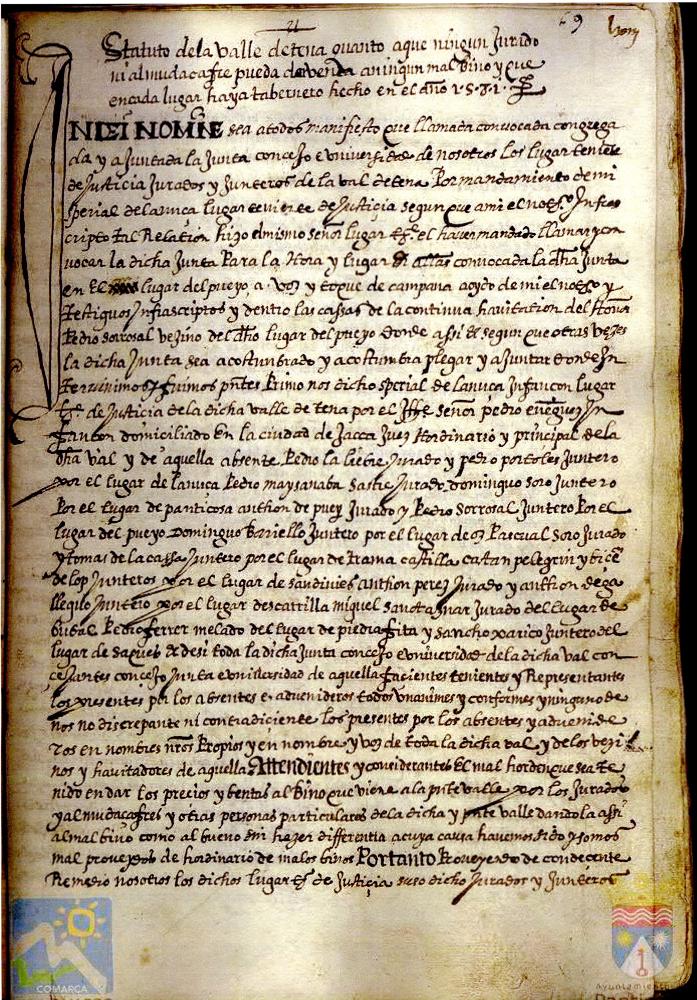 21
69
Statuto dela valle detena quanto aque ningun Jurado
ni almudacafre pueda dar venda aningun mal bino y que
encada lugar haya tabernero hecho en el año 1571
IN DEI NOMINE sea atodos manifiesto que llamada convocada congrega
da y ajuntada la Junta concejo e vniversidad de nosotros los lugar teniente
de Justicia Jurados y Junteros de la val detena Por mandamiento de mi
sperial delanuça lugar teniente de Justicia segun que ami el notº Infras
cripto tal Relacion hizo el mismo señor lugar tte el haver mandado llamar y con
vocar la dicha Junta Para la Hora y lugar allas convocada la dha Junta
en El lugar del pueyo a voz y toque de campana acodo de mi el noto y
testigos Infrascriptos y dentro las cassas de la continua havitacion del
Pedro sorrosal vezino del dho lugar del pueyo donde assi segun que otras vezes
la dicha Junta sea acostunbrado y acostumbra plegar y ajuntar donde In
terunimos y fuimos pntes Primo nos dicho sperial de lanuca Infancon lugar
tte de Justicia dela dicha valle de tena por el señor pedro In
fancon domiciliado En la ciudad de Jacca Juez Hordinario y principal dela
dha val y de aquella absente Pedro la liebre Jurado y pedro portoles Juntero
por el lugar de lanuca Pedro maysanaba sastre Jurado domingo soro Juntero
Por el lugar de panticosa anthon de puey Jurado y Pedro Sorrosal Juntero Por el
lugar del pueyo Domingo Borriello Juntero por el lugar de oz Pascual Soro Jurado
y tomas de la cassa Juntero por el lugar de trama castilla catan pelegrin y
de lop Junteros por el lugar de sandinies anthon perez Jurado y anthon de ga
lleguo Juntero por el lugar descarrilla miguel sancta mar Jurado del lugar de
bubal Pedro ferrer melado del lugar de piedrafita y sancho xarico Juntero del
lugar de saques Et desi toda la dicha Junta concejo e vniversidad dela dicha val con
cejantes concejo Junta e vniversidad de aquella facientes tenientes y Representantes
los presentes por los absentes e advenideros todos vnanimes y conformes y ninguno de
nos no discrepante ni contradiciente los presentes por los absentes y advenide
ros en nombres nros Propios y en nombre y voz de toda la dicha val y delos vezi
nos y havitadores de aquella Attendientes y considerantes El mal horden que sea te
nido en dar los precios y bentas al bino que viene a la pnte valle por los Jurados
y almudacafres y otras personas particulares dela dicha y pnte valle dandola assi
al mal bino como al bueno sin hazer differentia acuya causa havemos sido y somos
mal proveydos de hordinario de malos binos Portanto Proveyendo de condecente
Remedio nosotros los dichos lugar tte de Justicia suso dicho Jurados y Junteros
COMARCA
Ayuntamiento